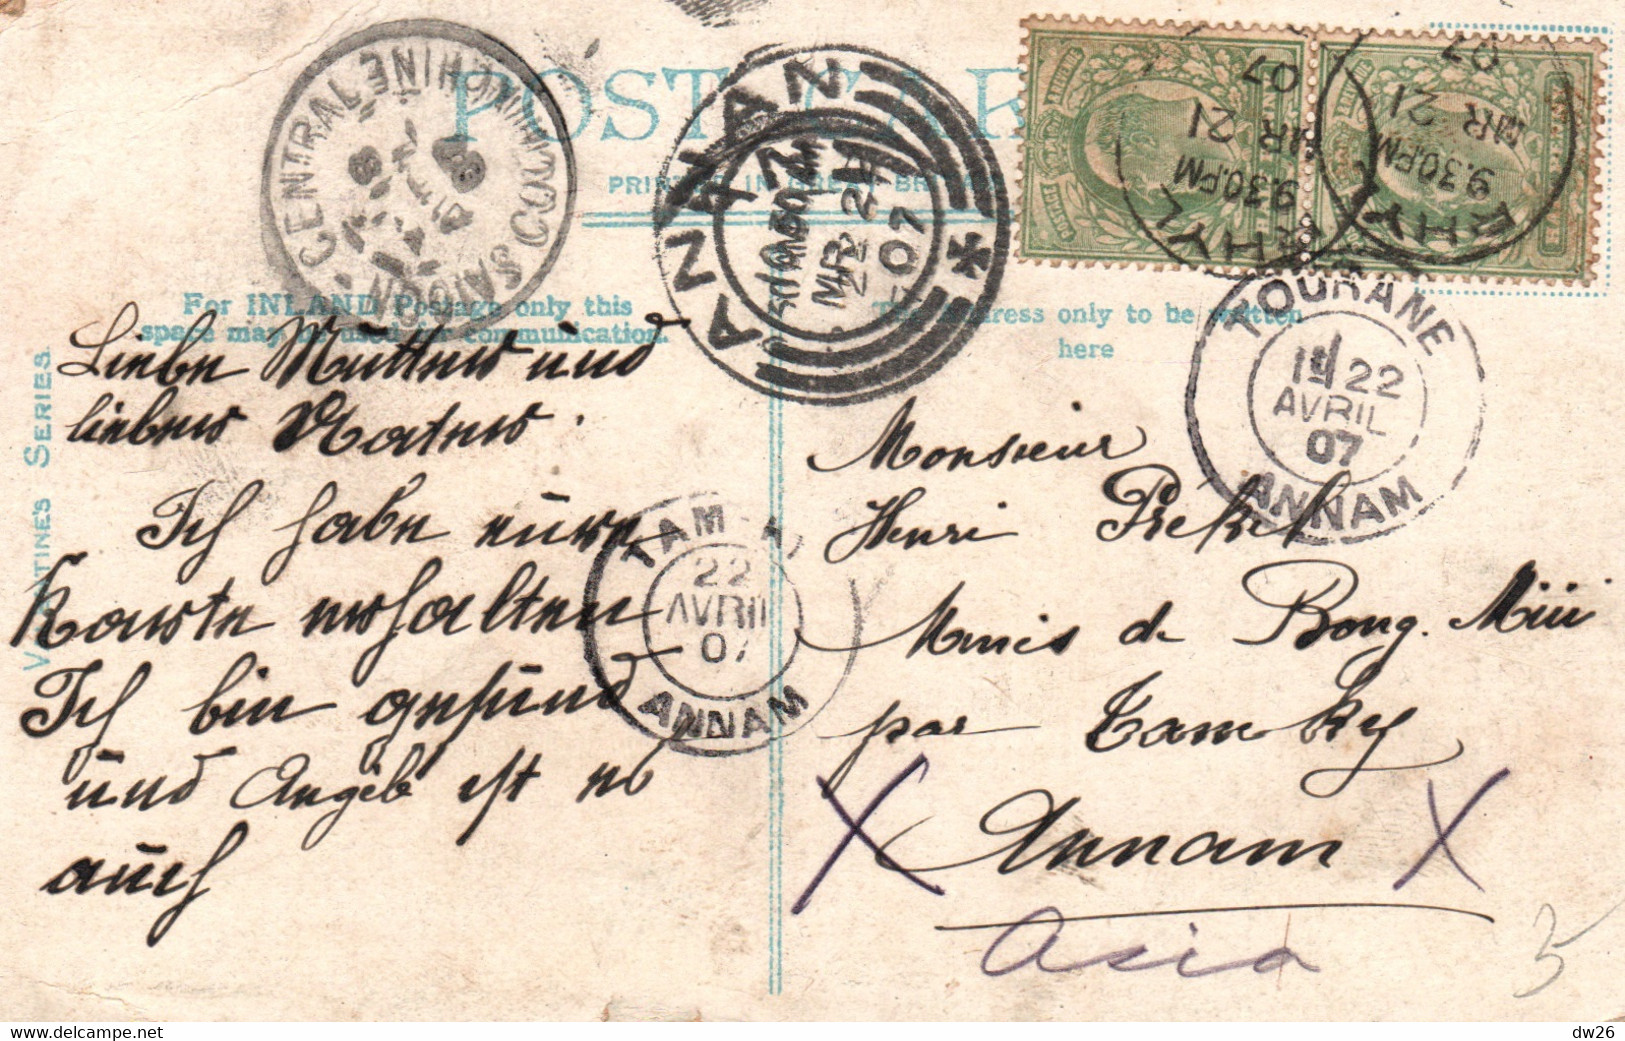 POST CAR
PRINTED IN GREAT BR
CENTRAL COCHINCHINE
SAIGON
ANNAN
MR 22
07
RHYL
9.30 PM
MR 21
07
RHYL
9.30 PM
MR 21
07
For INLAND Postage only this
space may be used for communication.
The Address only to be written
here
VALENTINE'S SERIES.
TOURANE
22
AVRIL
07
ANNAM
TAM
22
AVRIL
07
ANNAM
Liebe Mutter und
lieber Vater.
Ich habe eure
Karte erhalten
Ich bin gesund
und Angéle ist es
auch
Monsieur
Henri Pékel
Mines de Bong. Miu
par Tam Ky
Annam
X X
Asia
5
dw26